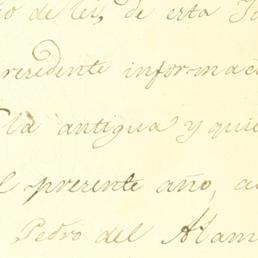 de ley, de esta
precedente informac
la antigua y quie
l presente año, a
Pedro del Alam